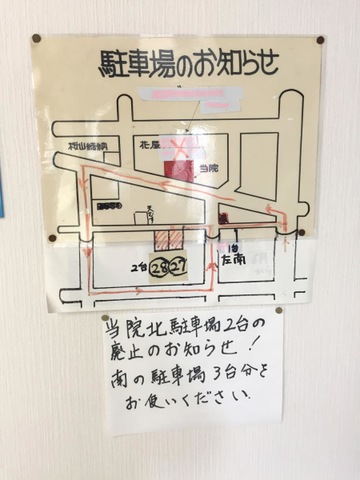 駐車場のお知らせ
花屋
当院
2台
28 27
1台
左南
当院北駐車場2台の
廃止のお知らせ!
南の駐車場3台分を
お使いください。